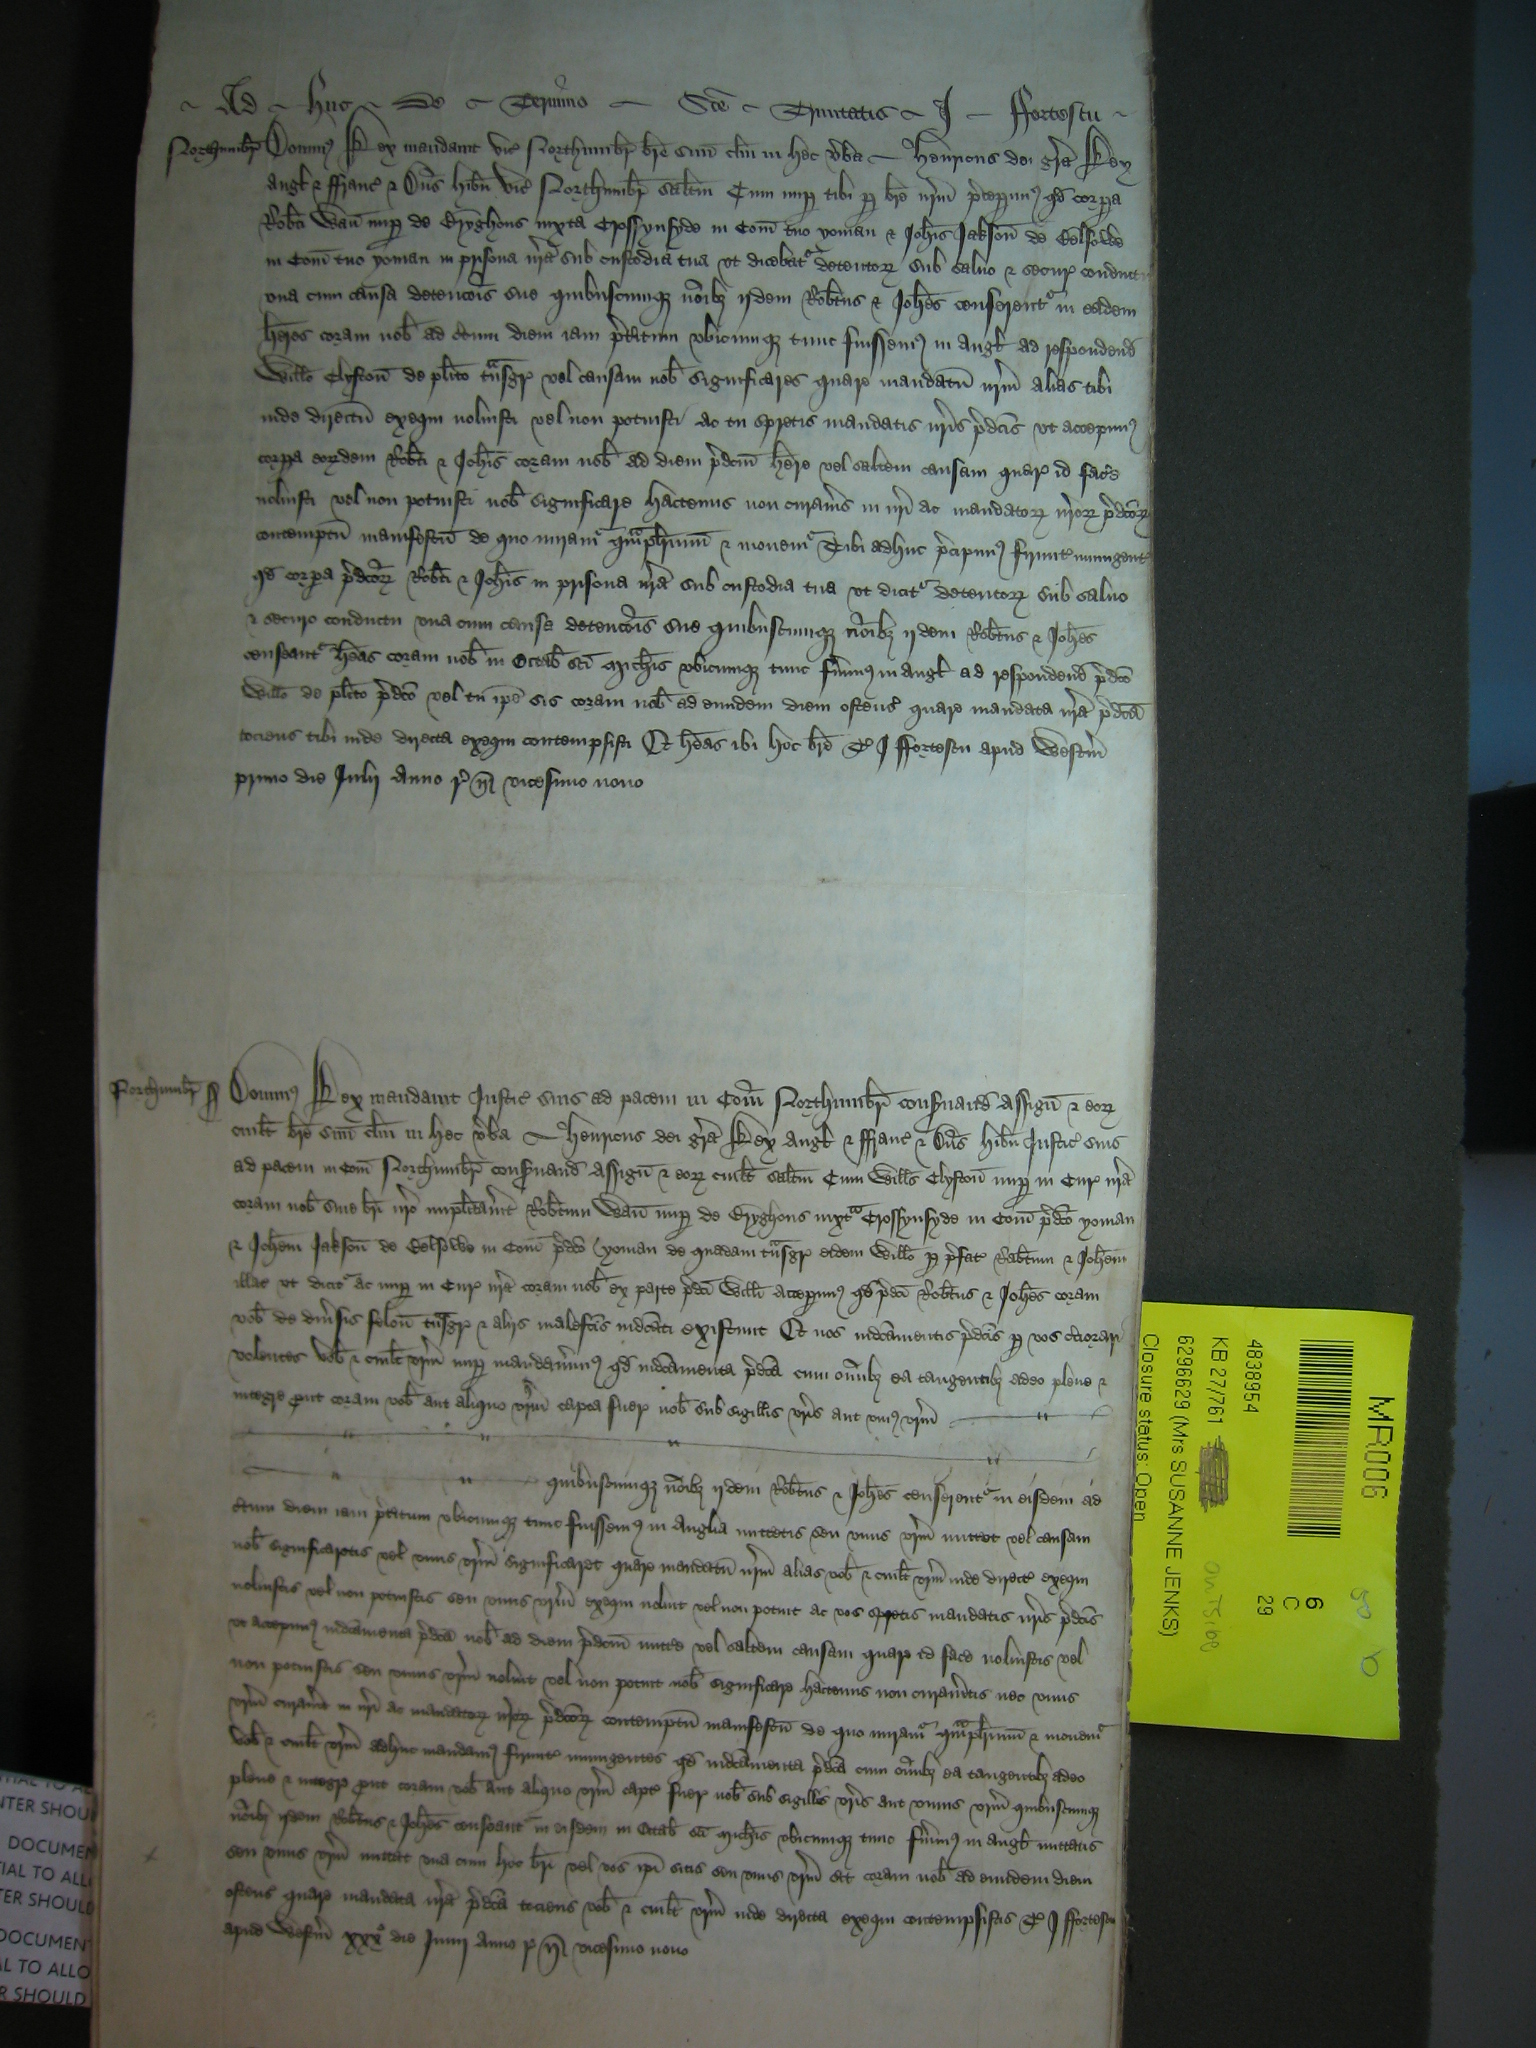 Ad huc de Termino Sce Trinitatis J ffortescu
Northumbr Domin9 Rex mandavit vic Northumbr bre suu clm in hec vba Henricus dei gra Rex
Angl & ffranc & Dns Hibn vic Northumbr saltm Cum nup tibi p bre nrm pcepim9 qd corpa
Robti Wau nup de juxta Crossynsyde in Com tuo yoman & Johis Jakson de
in Com tuo yoman in prisona nra sub custodia tua ut dicebat detentor sub salvo & secur conductu
una cum causa detencois sue quibuscumq noibz ijdem Robtus & Johes censerent in eadem
heres coram nob ad ctum diem iam ptitum ubicumq tunc fuissem9 in Angl ad respondend
Willo Clyfton de plito tnsgr vel causam nob significares quare mandatu nrm alias tibi
inde directu exequi noluisti vel non potuisti Ac tu spretis mandatis nris pdcis ut accepim9
corpa eordem Robti & Johis coram nob ad diem pdcm here vel saltem causam quare id face
noluisti vel non potuisti nob significare hactenus non curavis in nri ac mandator nror pdcor
contemptu manifestu de quo miram qmplimu & movem Tibi adhuc pcipim9 firmit iniungent
qd corpa pdcor Robti & Johis in prisona nra sub custodia tua ut dicit detentor sub salvo
& securo conductu una cum causa detencois sue quibuscumq noibz ijdem Robtus & Johes
censeant heas coram nob in Octab sci Michis ubicumq tunc fuim9 in Angl ad respondend pdco
Willo de plito pdco vel tu ipe sis coram nob ad eundem diem ostens quare mandata nra pdca
tociens tibi inde directa exequi contempsisti Et heas ibi hoc bre T J ffortescu apud Westm
primo die Julij Anno r n vicesimo nono
Northumbr Domin9 Rex mandavit Justic suis ad pacem in Com Northumbr conservand Assign & eor
cuilt bre suu clm in hec vba Henricus dei gra Rex Angl & ffranc & Dns Hibn Justic suis
ad pacem in Com Northumbr conservand Assign & eor cuilt saltm Cum Wills Clyfton nup in Cur nra
coram nob sine bri nro implitavit Robtum Wau nup de juxta Crossynsyde in Com pdco yoman
& Johem Jakson de in Com pdco yoman de quadam tnsgr eidem Willo p pfat Robtum & Johem
illat ut dicit ac nup in Cur nra coram nob ex parte pdci Willi Accepim9 qd pdci Robtus & Johes coram
vob de divsis felon tnsgr & alijs malefcis indcati existunt Et nos indcamentis pdcis p vos ctiorari
volentes vob & cuilt vrm nup mandavim9 qd indcamenta pdca cum omibz ea tangentibz adeo plene &
integre put coram vob aut aliquo vrm capta fuer nob sub sigillis vris aut uni9 vrm
quibuscumq noibz ijdem Robtus & Johes censerent in eisdem ad
ctum diem iam ptitum ubicumq tunc fuissem9 in Anglia mittetis seu unus vrm mittet vel causam
nob significaretis vel unus vrm significaret quare mandatu nrm alias vob & cuilt vrm inde direct exequi
noluistis vel non potuistis seu unus vrm exequi noluit vel non potuit ac vos spretis mandatis nris pdcis
ut accepim9 indcamenta pdca nob ad diem pdcm mitte vel saltem causam quare id face noluistis vel
non potuistis seu unus vrm noluit vel non potuit nob significare hactenus non curavitis nec unus
vrm curavit in nri ac mandator nror pdcor contemptu manifestu de quo miram qmplimu & movem
Vob & cuilt vrm adhuc mandam9 firmit iniungentes qd indcamenta pdca cum omibz ea tangentibz adeo
plene & integre put coram vob aut aliquo vrm capt fuer nob sub sigillis vris aut unius vrm quibuscumq
noibz ijdem Robtus & Johes censeant in eisdem in Octab sci Michis ubicumq tunc fuim9 in Angl mittatis
seu unus vrm mittat una cum hoc bri vel vos ipi sitis seu unus vrm sit coram nob ad eundem diem
ostens quare mandata nra pdca tociens vob & cuilt vrm inde directa exequi contempsistis T J ffortescu
apud Westm xxx die Junij Anno r n vicesimo nono
MR006
6
C
29
4838954
KB 27/761
6296629 (Mrs SUSANNE JENKS)
Closure status: Open
NTER SHOU
DOCUMEN
TIAL TO ALL
TER SHOULD
DOCUMENT
AL TO ALLO
R SHOULD